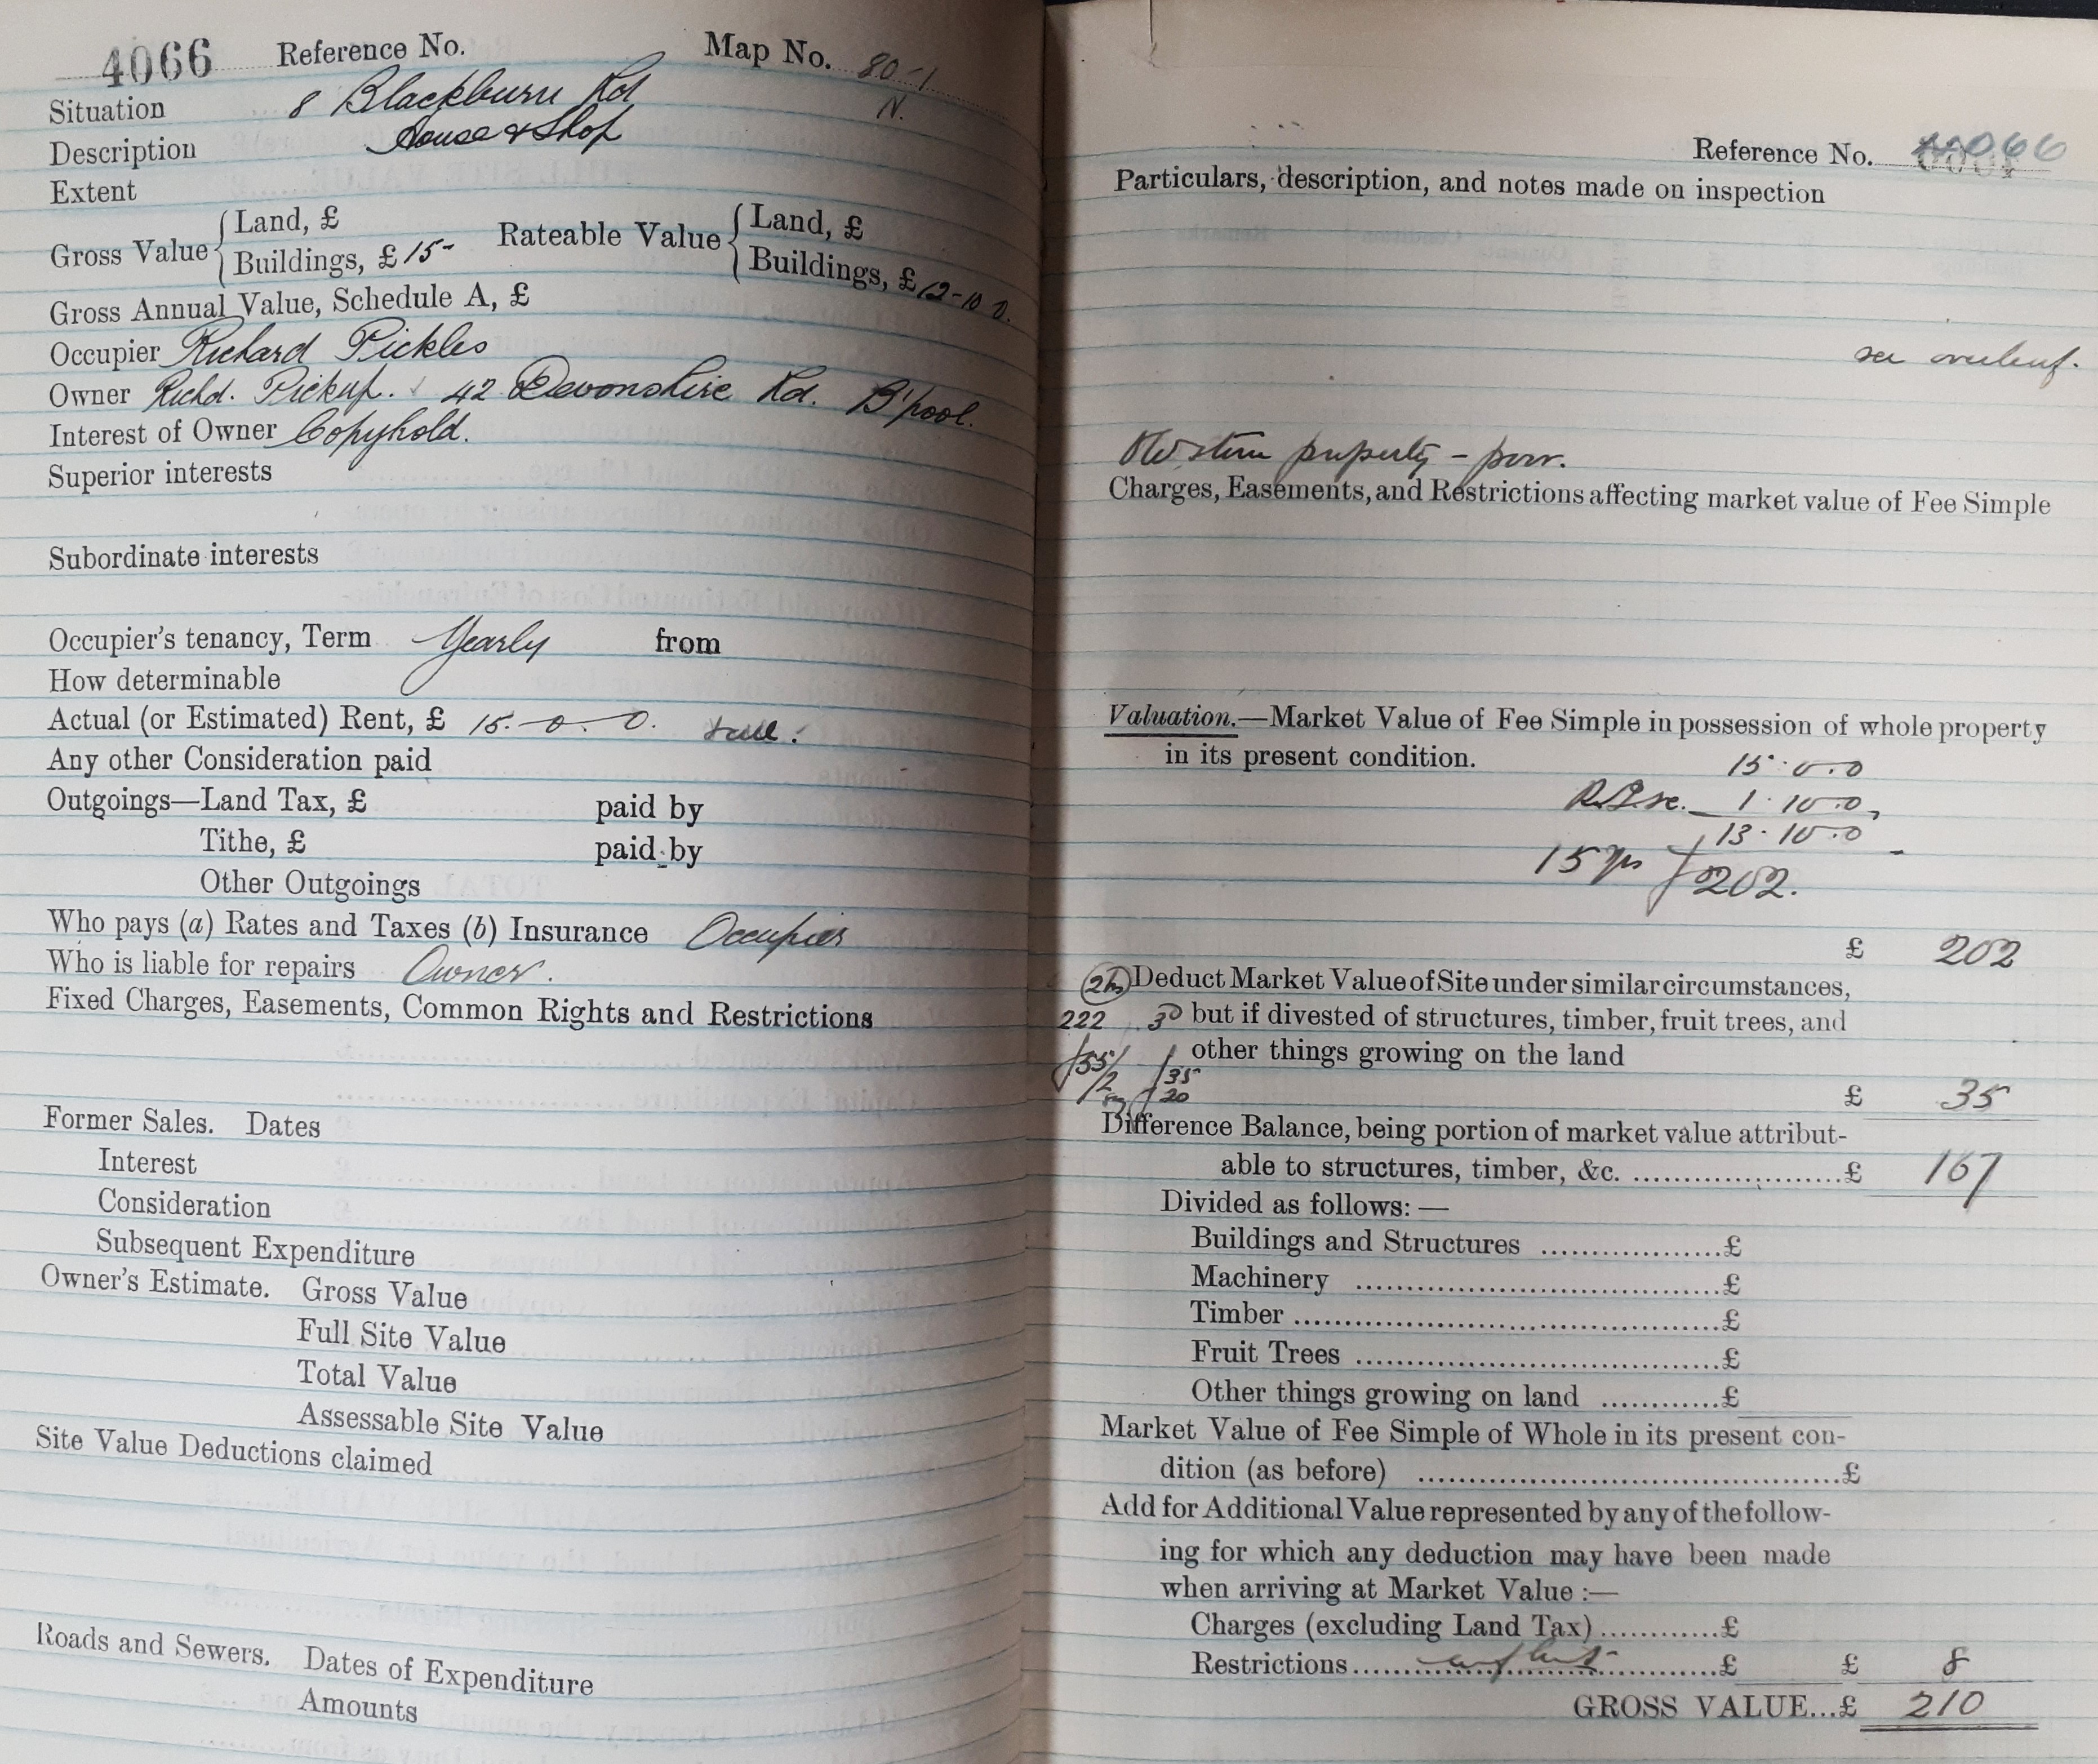 4066 Reference No. Map No. 80-1
N.
Situation 8 Blackburn Rd
Description House & Shop
Extent
Gross Value { Land, £ Rateable Value { Land, £
Buildings, £ 15- Buildings, £ 12-10 0.
Gross Annual Value, Schedule A, £
Occupier Richard Pickles
Owner Richd. Pickup. 42 Devonshire Rd. B'pool.
Interest of Owner Copyhold.
Superior interests
Subordinate interests
Occupier's tenancy, Term Yearly from
How determinable
Actual (or Estimated) Rent, £ 15. 0. 0.
Any other Consideration paid
Outgoings—Land Tax, £ paid by
Tithe, £ paid by
Other Outgoings
Who pays (a) Rates and Taxes (b) Insurance Occupier
Who is liable for repairs Owner.
Fixed Charges, Easements, Common Rights and Restrictions
Former Sales. Dates
Interest
Consideration
Subsequent Expenditure
Owner's Estimate. Gross Value
Full Site Value
Total Value
Assessable Site Value
Site Value Deductions claimed
Roads and Sewers. Dates of Expenditure
Amounts
Reference No. 4066
Particulars, description, and notes made on inspection
see overleaf.
Old stone property - poor.
Charges, Easements, and Restrictions affecting market value of Fee Simple
Valuation.—Market Value of Fee Simple in possession of whole property
in its present condition.
15.0.0
1.10.0
13.10.0
15 yrs £202.
£ 202
Deduct Market Value of Site under similar circumstances,
222 30 but if divested of structures, timber, fruit trees, and
other things growing on the land
£ 35
Difference Balance, being portion of market value attribut-
able to structures, timber, &c. ....................£ 167
Divided as follows: —
Buildings and Structures ..................£
Machinery ....................................£
Timber ..........................................£
Fruit Trees ....................................£
Other things growing on land ............£
Market Value of Fee Simple of Whole in its present con-
dition (as before) ..........................................£
Add for Additional Value represented by any of the follow-
ing for which any deduction may have been made
when arriving at Market Value :—
Charges (excluding Land Tax)............£
Restrictions....................................£ £ 8
GROSS VALUE...£ 210